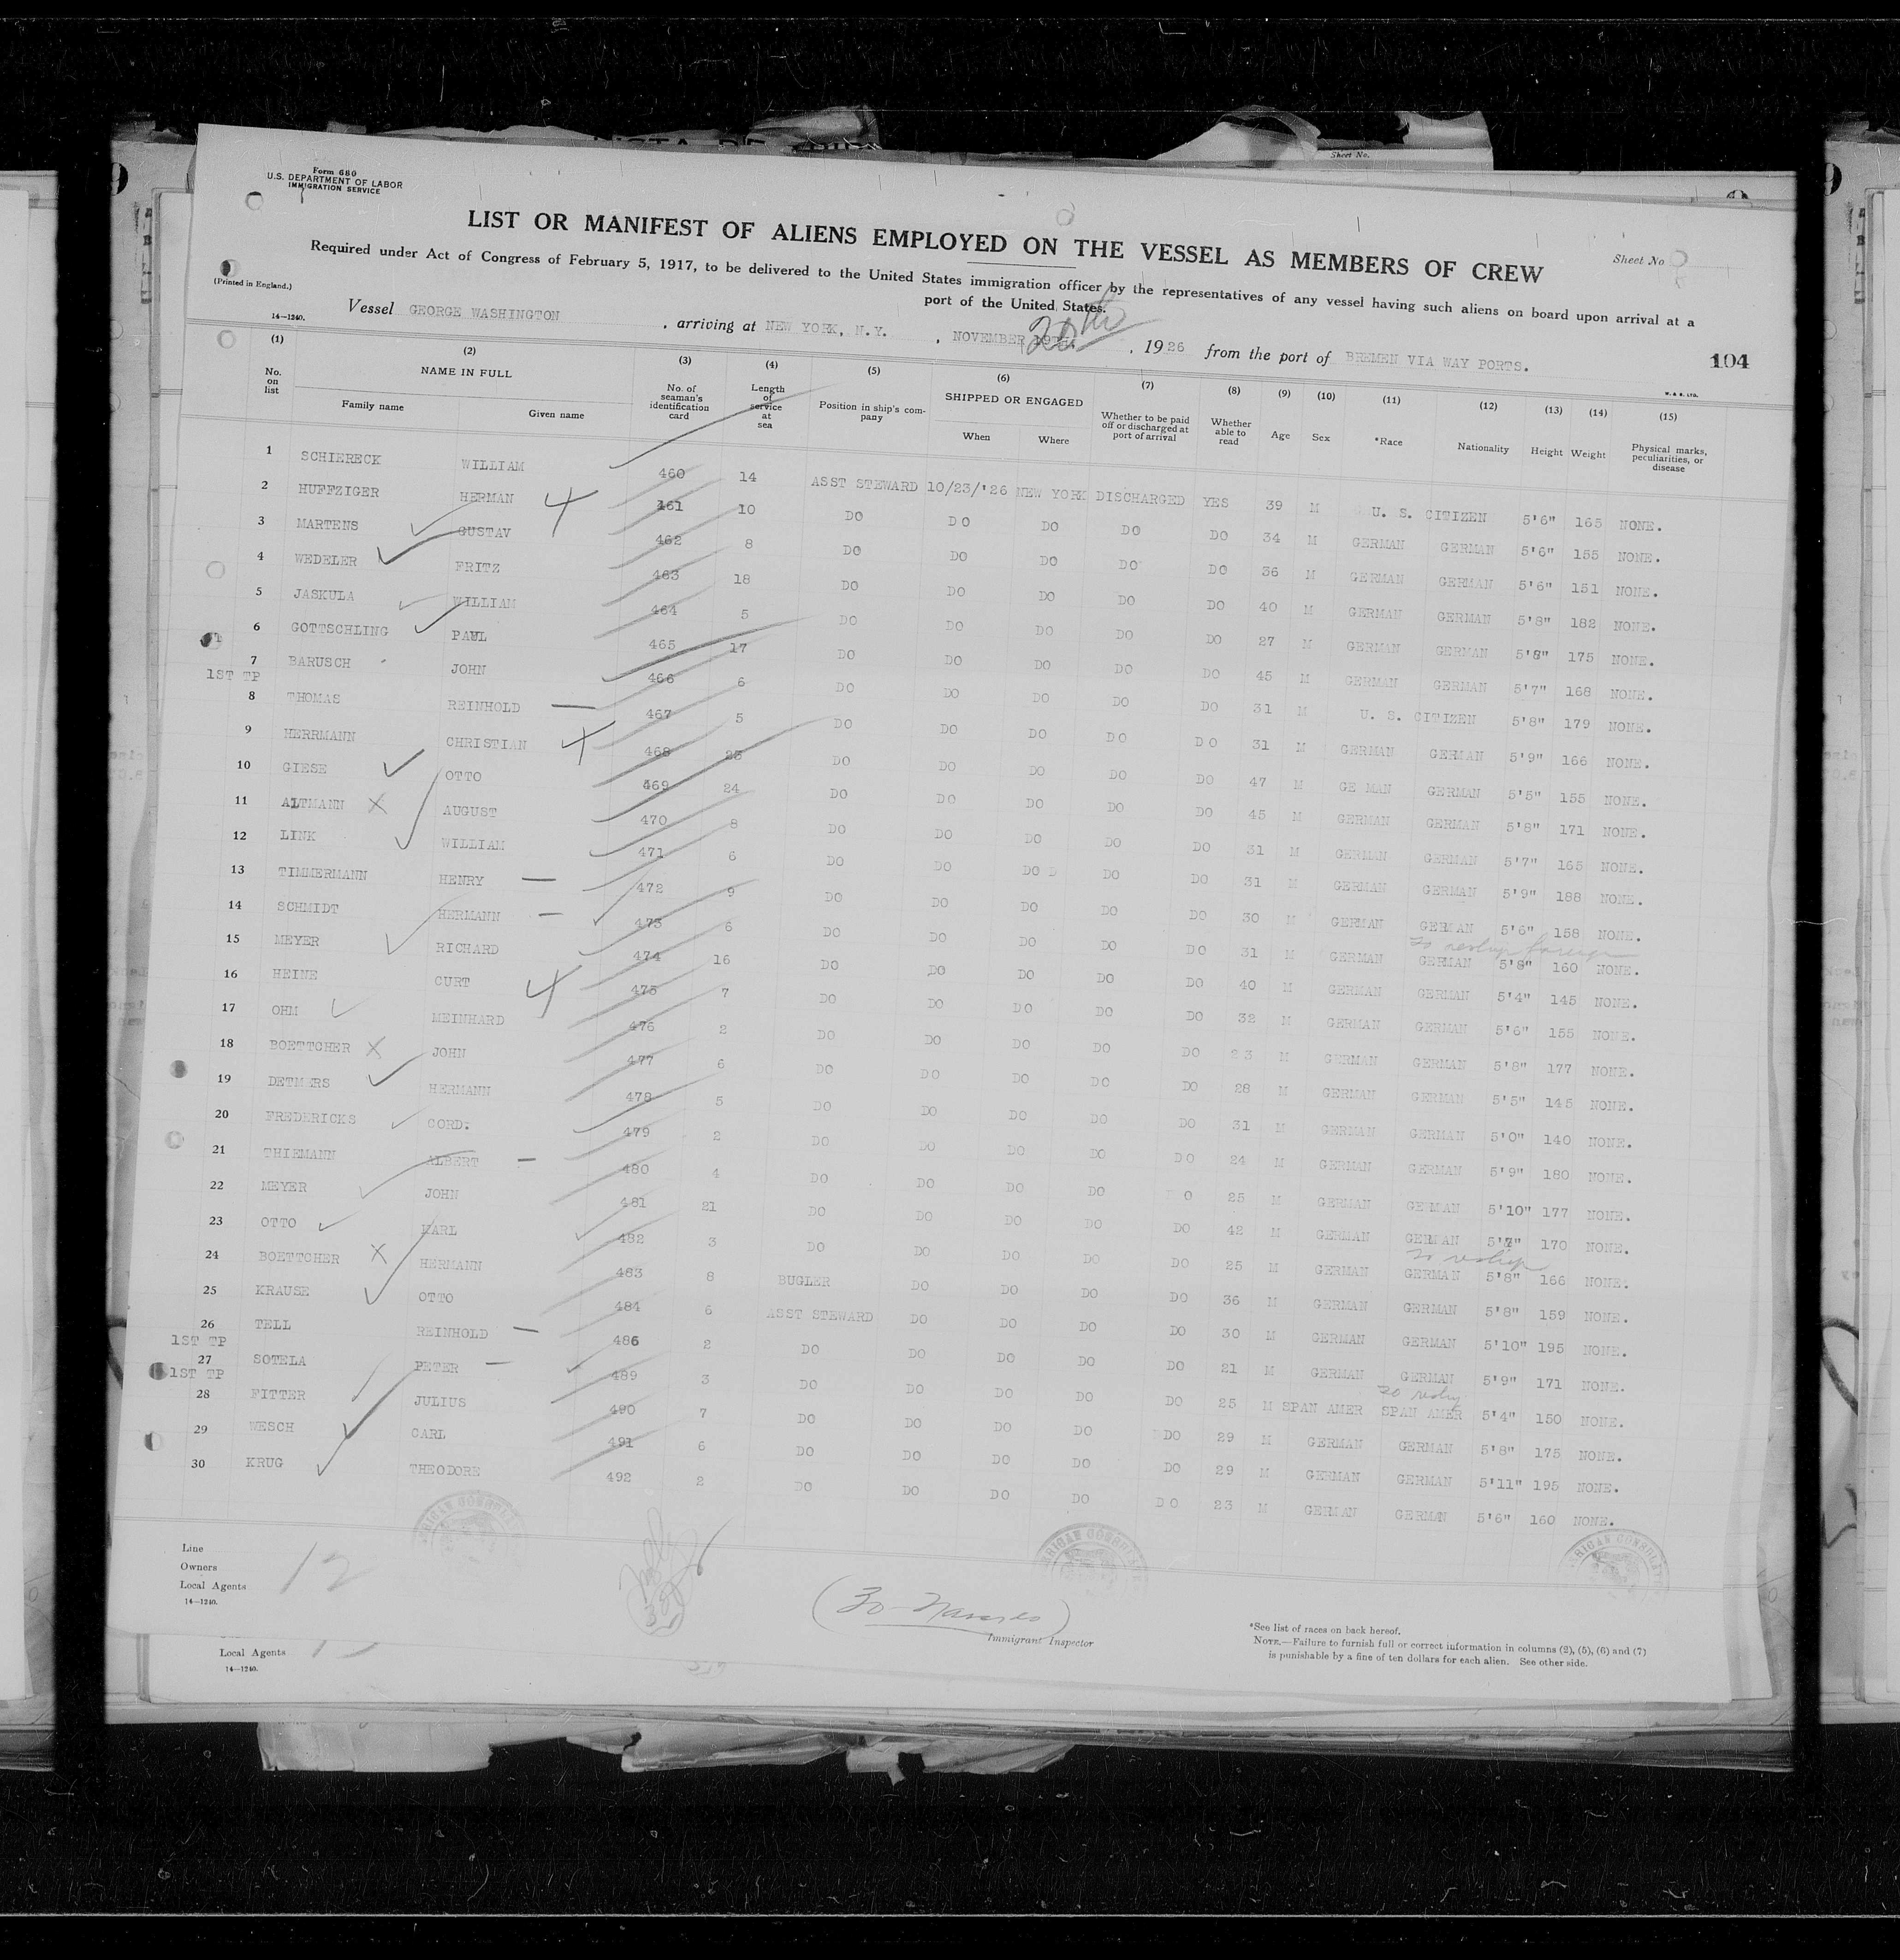 Sheet No.
Form 680
U.S. DEPARTMENT OF LABOR
IMMIGRATION SERVICE
LIST OR MANIFEST OF ALIENS EMPLOYED ON THE VESSEL AS MEMBERS OF CREW
Sheet No
Required under Act of Congress of February 5, 1917, to be delivered to the United States immigration officer by the representatives of any vessel having such aliens on board upon arrival at a
port of the United States.
(Printed in England.)
14—1240.
Vessel GEORGE WASHINGTON , arriving at NEW YORK, N.Y. , NOVEMBER 20th , 1926 from the port of BREMEN VIA WAY PORTS.
104
W. & S. LTD.
(1) (2) (3) (4) (5) (6) (7) (8) (9) (10) (11) (12) (13) (14) (15)
No. on list NAME IN FULL Family name Given name No. of seaman's identification card Length of service at sea Position in ship's company SHIPPED OR ENGAGED When Where Whether to be paid off or discharged at port of arrival Whether able to read Age Sex *Race Nationality Height Weight Physical marks, peculiarities, or disease
1 SCHIERECK WILLIAM 460 14 ASST STEWARD 10/23/'26 NEW YORK DISCHARGED YES 39 M U. S. CITIZEN 5'6" 165 NONE.
2 HUFFZIGER HERMAN 461 10 DO DO DO DO DO 34 M GERMAN GERMAN 5'6" 155 NONE.
3 MARTENS GUSTAV 462 8 DO DO DO DO DO 36 M GERMAN GERMAN 5'6" 151 NONE.
4 WEDELER FRITZ 463 18 DO DO DO DO DO 40 M GERMAN GERMAN 5'8" 182 NONE.
5 JASKULA WILLIAM 464 5 DO DO DO DO DO 27 M GERMAN GERMAN 5'8" 175 NONE.
6 GOTTSCHLING PAUL 465 17 DO DO DO DO DO 45 M GERMAN GERMAN 5'7" 168 NONE.
7 BARUSCH JOHN 466 6 DO DO DO DO DO 31 M U. S. CITIZEN 5'8" 179 NONE.
1ST TP
8 THOMAS REINHOLD 467 5 DO DO DO DO DO 31 M GERMAN GERMAN 5'9" 166 NONE.
9 HERRMANN CHRISTIAN 468 23 DO DO DO DO DO 47 M GE MAN GERMAN 5'5" 155 NONE.
10 GIESE OTTO 469 24 DO DO DO DO DO 45 M GERMAN GERMAN 5'8" 171 NONE.
11 ALTMANN AUGUST 470 8 DO DO DO DO DO 31 M GERMAN GERMAN 5'7" 165 NONE.
12 LINK WILLIAM 471 6 DO DO DO D DO DO 31 M GERMAN GERMAN 5'9" 188 NONE.
13 TIMMERMANN HENRY 472 9 DO DO DO DO DO 30 M GERMAN GERMAN 5'6" 158 NONE.
to reship foreign
14 SCHMIDT HERMANN 473 6 DO DO DO DO DO 31 M GERMAN GERMAN 5'8" 160 NONE.
15 MEYER RICHARD 474 16 DO DO DO DO DO 40 M GERMAN GERMAN 5'4" 145 NONE.
16 HEINE CURT 475 7 DO DO DO DO DO 32 M GERMAN GERMAN 5'6" 155 NONE.
17 OHM MEINHARD 476 2 DO DO DO DO DO 23 M GERMAN GERMAN 5'8" 177 NONE.
18 BOETTCHER JOHN 477 6 DO DO DO DO DO 28 M GERMAN GERMAN 5'5" 145 NONE.
19 DETMERS HERMANN 478 5 DO DO DO DO DO 31 M GERMAN GERMAN 5'0" 140 NONE.
20 FREDERICKS CORD: 479 2 DO DO DO DO DO 24 M GERMAN GERMAN 5'9" 180 NONE.
21 THIEMANN ALBERT 480 4 DO DO DO DO O 25 M GERMAN GERMAN 5'10" 177 NONE.
22 MEYER JOHN 481 21 DO DO DO DO DO 42 M GERMAN GERMAN 5'7" 170 NONE.
to reship
23 OTTO KARL 482 3 DO DO DO DO DO 25 M GERMAN GERMAN 5'8" 166 NONE.
24 BOETTCHER HERMANN 483 8 BUGLER DO DO DO DO 36 M GERMAN GERMAN 5'8" 159 NONE.
25 KRAUSE OTTO 484 6 ASST STEWARD DO DO DO DO 30 M GERMAN GERMAN 5'10" 195 NONE.
26 TELL REINHOLD 486 2 DO DO DO DO DO 21 M GERMAN GERMAN 5'9" 171 NONE.
1ST TP
to reship
27 SOTELA PETER 489 3 DO DO DO DO DO 25 M SPAN AMER SPAN AMER 5'4" 150 NONE.
1ST TP
28 FITTER JULIUS 490 7 DO DO DO DO DO 29 M GERMAN GERMAN 5'8" 175 NONE.
29 WESCH CARL 491 6 DO DO DO DO DO 29 M GERMAN GERMAN 5'11" 195 NONE.
30 KRUG THEODORE 492 2 DO DO DO DO DO 23 M GERMAN GERMAN 5'6" 160 NONE.
Line
Owners
Local Agents
14—1240.
12
Immigrant Inspector
*See list of races on back hereof.
NOTE.—Failure to furnish full or correct information in columns (2), (5), (6) and (7)
is punishable by a fine of ten dollars for each alien. See other side.
Local Agents
14—1240.